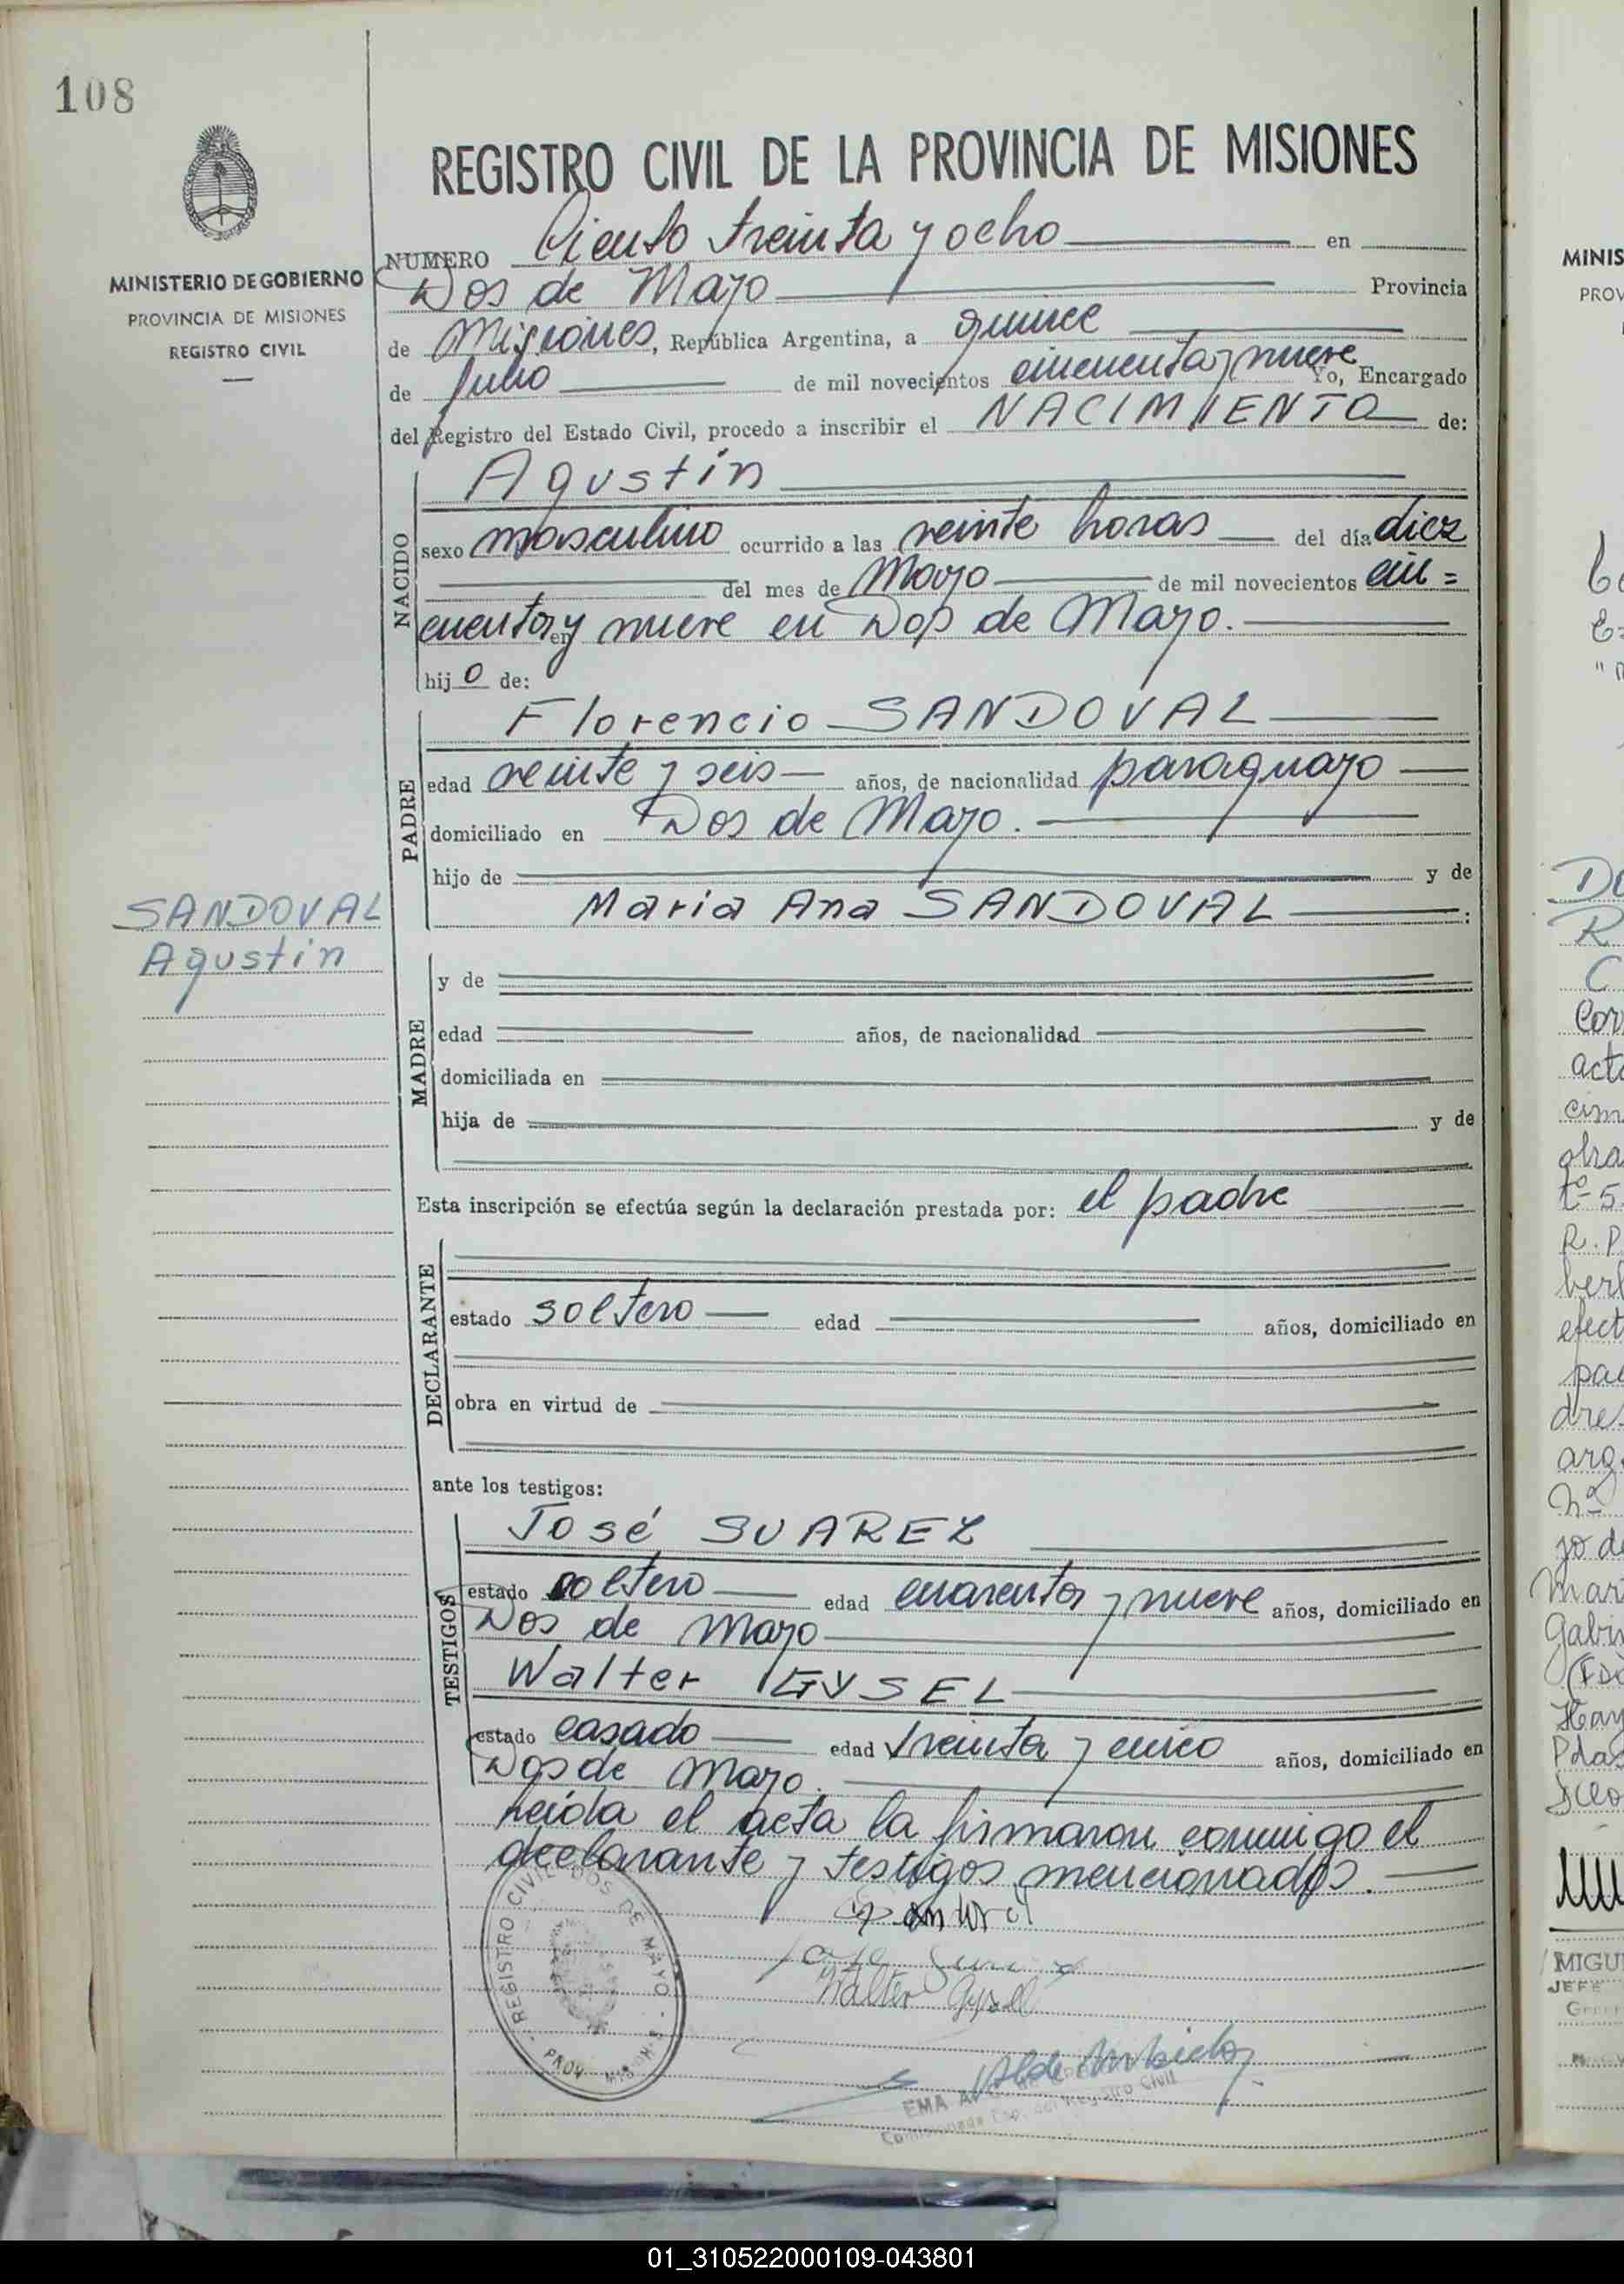 108
REGISTRO CIVIL DE LA PROVINCIA DE MISIONES
MINISTERIO DE GOBIERNO
PROVINCIA DE MISIONES
REGISTRO CIVIL
NUMERO Ciento treinta y ocho en
Dos de Mayo Provincia
de Misiones, República Argentina, a quince
de Julio de mil novecientos cincuenta y nueve Yo, Encargado
del Registro del Estado Civil, procedo a inscribir el NACIMIENTO de:
NACIDO
Agustín
sexo masculino ocurrido a las veinte horas del día diez
del mes de Mayo de mil novecientos cin=
cuenta y en nueve en Dos de Mayo.
hijo de:
PADRE
Florencio SANDOVAL
edad veinte y seis años, de nacionalidad paraguayo
domiciliado en Dos de Mayo.
hijo de y de
Maria Ana SANDOVAL :
SANDOVAL
Agustin
MADRE
y de
edad años, de nacionalidad
domiciliada en
hija de y de
Esta inscripción se efectúa según la declaración prestada por: el padre
DECLARANTE
estado soltero edad años, domiciliado en
obra en virtud de
ante los testigos:
TESTIGOS
José SUAREZ
estado soltero edad cuarenta y nueve años, domiciliado en
Dos de Mayo
Walter GYSEL
estado casado edad treinta y cinco años, domiciliado en
Dos de Mayo.
Leída el acta la firmaron conmigo el
declarante y testigos mencionados.
Walter Gysel
REGISTRO CIVIL DOS DE MAYO
PROV MIS
EMA
del Registro Civil
MINIS
PROV
Cor
acta
cim
otra
R. P
efect
arg
Nº
jo de
Mar
Gabin
MIGU
JEFE
01_310522000109-043801